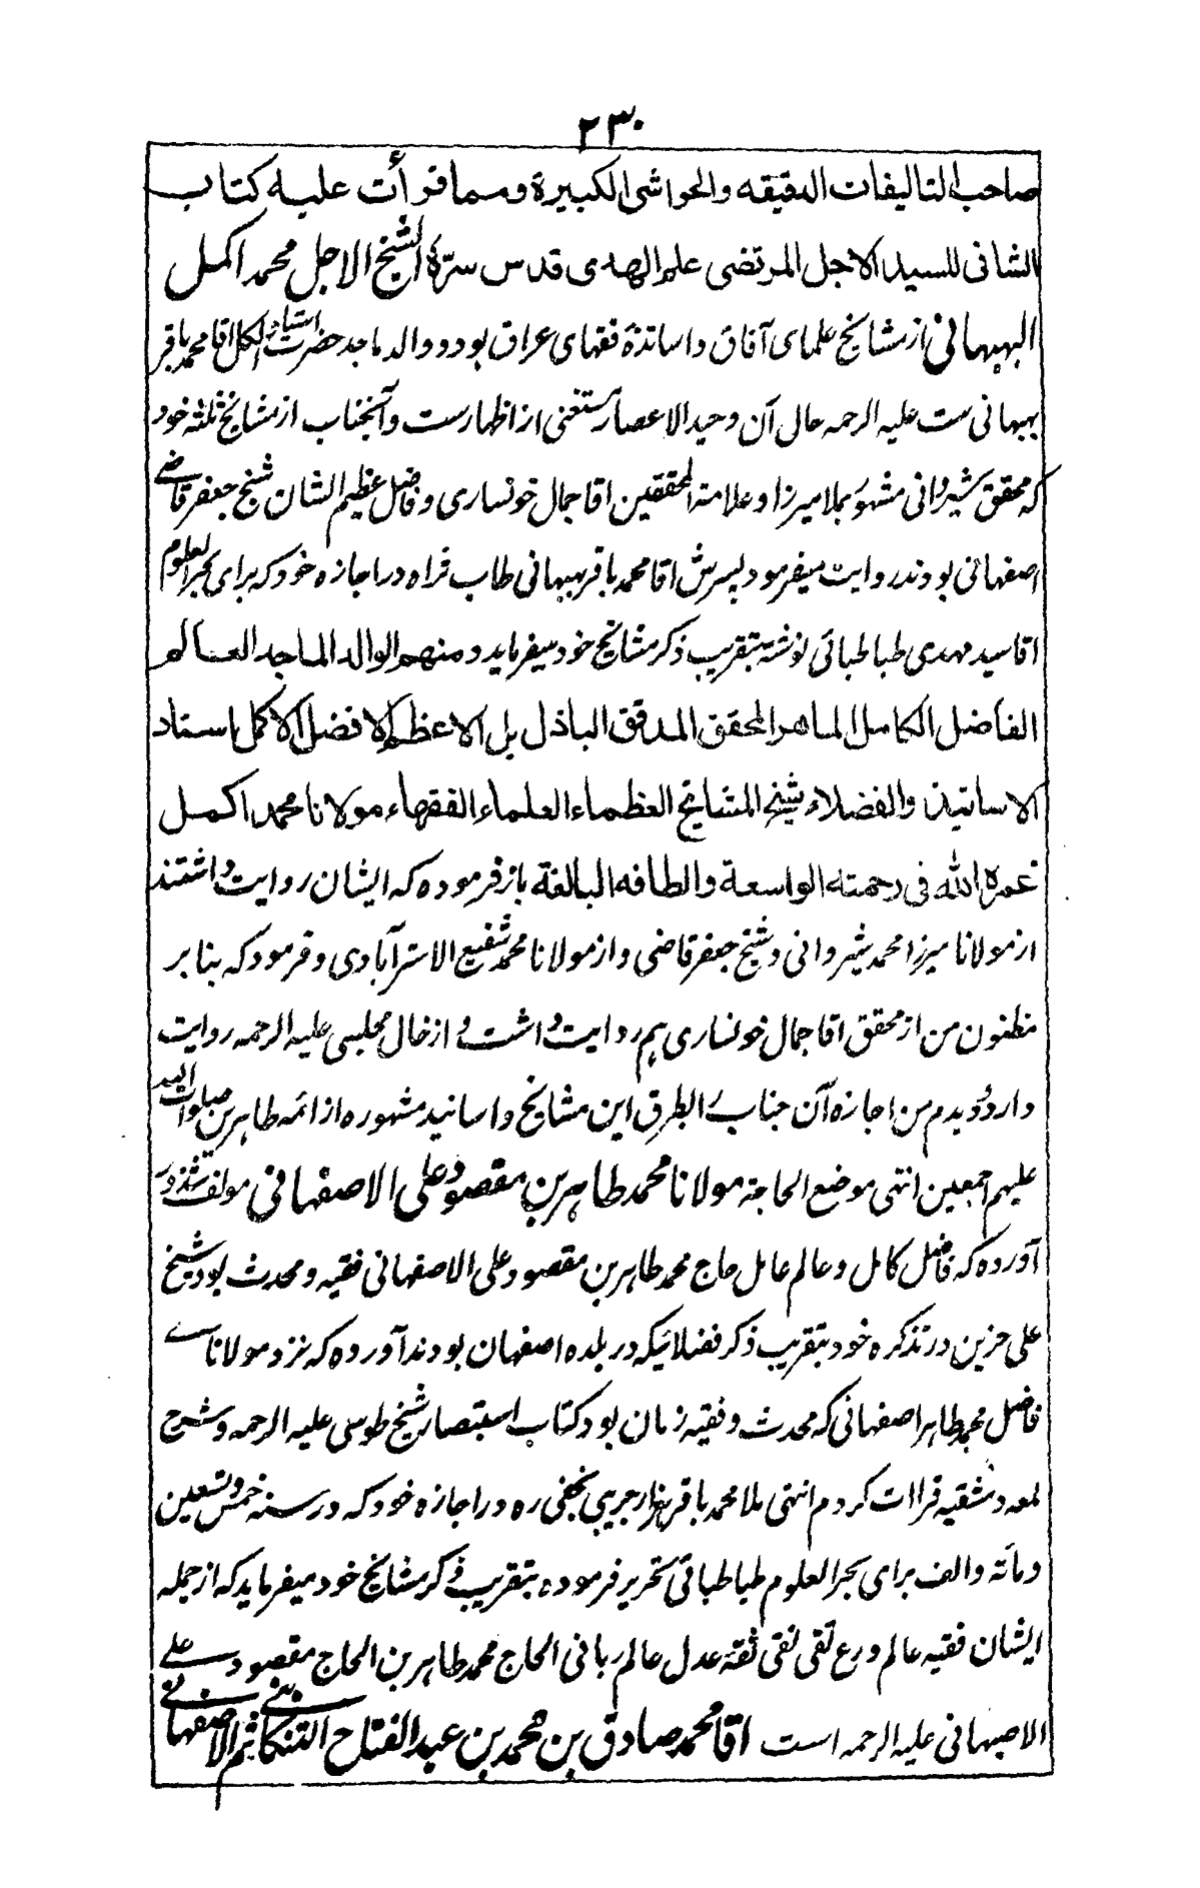 ۲۳۰
صاحب التالیفات الدقیقه والحواشی الکبیرة ومما قرأت علیه کتاب
الشافی للسید الاجل المرتضی علم الهدی قدس سرّهٗ الشیخ الاجل محمد اکمل
البهبهانی از مشایخ علمای آفاق و اساتذهٔ فقهای عراق بود و والد ماجد حضرت استاد الکل اقا محمد باقر
بهبهانی ست علیه الرحمه حال آن وحید الاعصار مستغنی از اظهارست و آنجناب از مشایخ ثلثه خود
که محقق شیروانی مشهور بملا میرزا و علامة المحققین اقا جمال خونساری و فاضل عظیم الشان شیخ جعفر قاضے
اصفهانی بودند روایت میفرمود پسرش اقا محمد باقر بهبهانی طاب ثراه در اجازه خود که برای بحر العلوم
اقا سید مهدی طباطبائی نوشته بتقریب ذکر مشایخ خود میفرماید و منهم الوالد الماجد العالم
الفاضل الکامل الماهر المحقق المدقق الباذل بل الاعظم الافضل الاکمل استاد
الاساتیذ والفضلاء شیخ المشایخ العظماء العلماء الفقهاء مولانا محمد اکمل
غمره الله فی رحمته الواسعة والطافه البالغة باز فرموده که ایشان روایت داشتند
از مولانا میرزا محمد شیروانی و شیخ جعفر قاضی و از مولانا محمد شفیع الاسترآبادی و فرمود که بنا بر
مظنون من از محقق اقا جمال خونساری هم روایت داشت و از خال مجلسی علیه الرحمه روایت
دارد و دیدم من اجازه آن جناب الطرق این مشایخ و اسانید مشهوره از ائمه طاهرین صلوات الله
علیهم اجمعین انتهی موضع الحاجة مولانا محمد طاهر بن مقصود علی الاصفهانی مولف شذور
آورده که فاضل کامل و عالم عامل حاج محمد طاهر بن مقصود علی الاصفهانی فقیه و محدث بود شیخ
علی حزین در تذکره خود بتقریب ذکر فضلائیکه در بلده اصفهان بودند آورده که نزد مولاناے
فاضل محمد طاهر اصفهانی که محدث و فقیه زمان بود کتاب استبصار شیخ طوسی علیه الرحمه و شرح
لمعه دمشقیه قراات کردم انتهی ملا محمد باقر هزار جریبی نجفی ره در اجازه خود که در سنه خمس و تسعین
و مائة والف برای بحر العلوم طباطبائی تحریر فرموده بتقریب ذکر مشایخ خود میفرماید که از جمله
ایشان فقیه عالم ورع تقی نقی ثقه عدل عالم ربانی الحاج محمد طاهر بن الحاج مقصود علے
الاصبهانی علیه الرحمه است اقا محمد صادق بن محمد بن عبد الفتاح التنکابنے ثم الاصفهانے